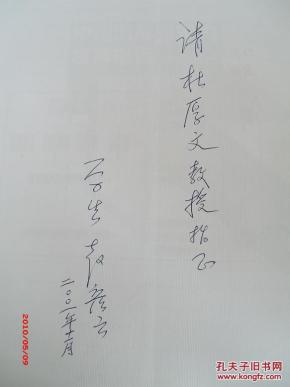 请杜厚文教授指正
学生 赵彦云
二〇〇一年十二月
2010/05/09
孔夫子旧书网